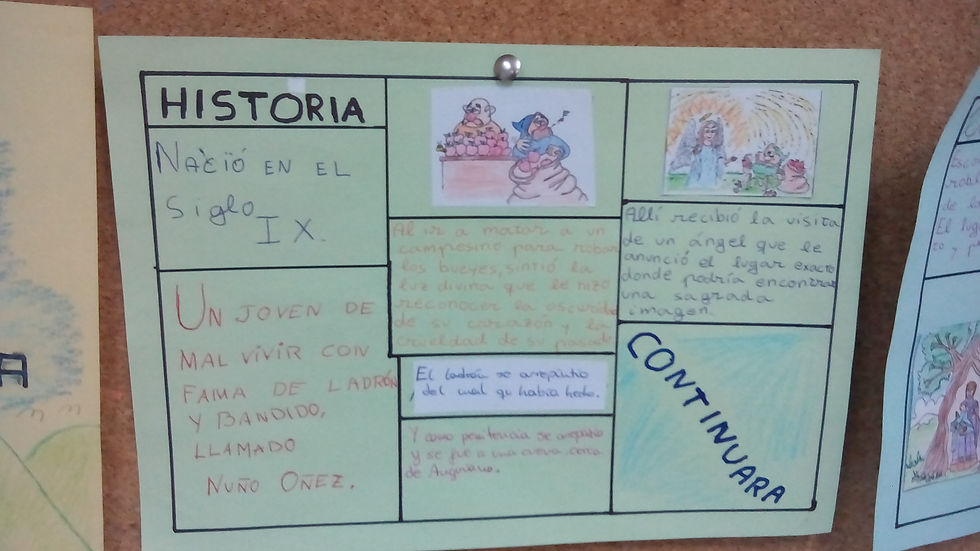 HISTORIA
NACIÓ EN EL
Siglo
IX.
UN JOVEN DE
MAL VIVIR CON
FAMA DE LADRÓN
Y BANDIDO,
LLAMADO
NUÑO OÑEZ.
Al ir a matar a un
campesino para robar
los bueyes, sintió la
luz divina que le hizo
reconocer la oscuridad
de su corazón y la
crueldad de su pasado
El ladrón se arrepintio
del mal qu había hecho.
Y como penitencia se
y se fue a una cueva cerca
de Anguiano.
Allí recibió la visita
de un ángel que le
anunció el lugar exacto
donde podría encontrar
una sagrada
imagen.
CONTINUARA
A
robl
de la
El luga
ro y p